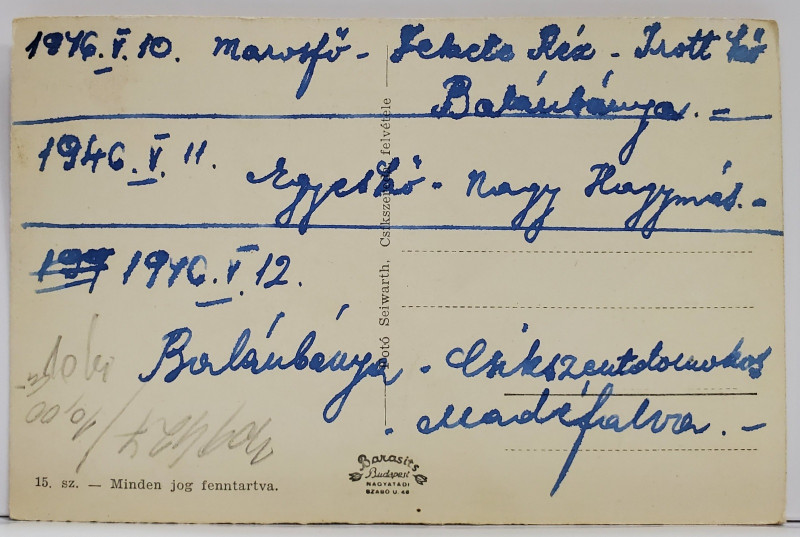 1946.V.10. Marosfő - Fekete Réz - Irott kő
Balánbánya. -
1946.V.11.
Egyeskő - Nagy Hagymás. -
1946.V.12.
Balánbánya - Csíkszentdomokos
- Madéfalva. -
Fotó Seiwarth, Csíkszereda felvétele
15. sz. — Minden jog fenntartva.
Barasits
Budapest
NAGYATÁDI
SZABÓ U. 48
10,00